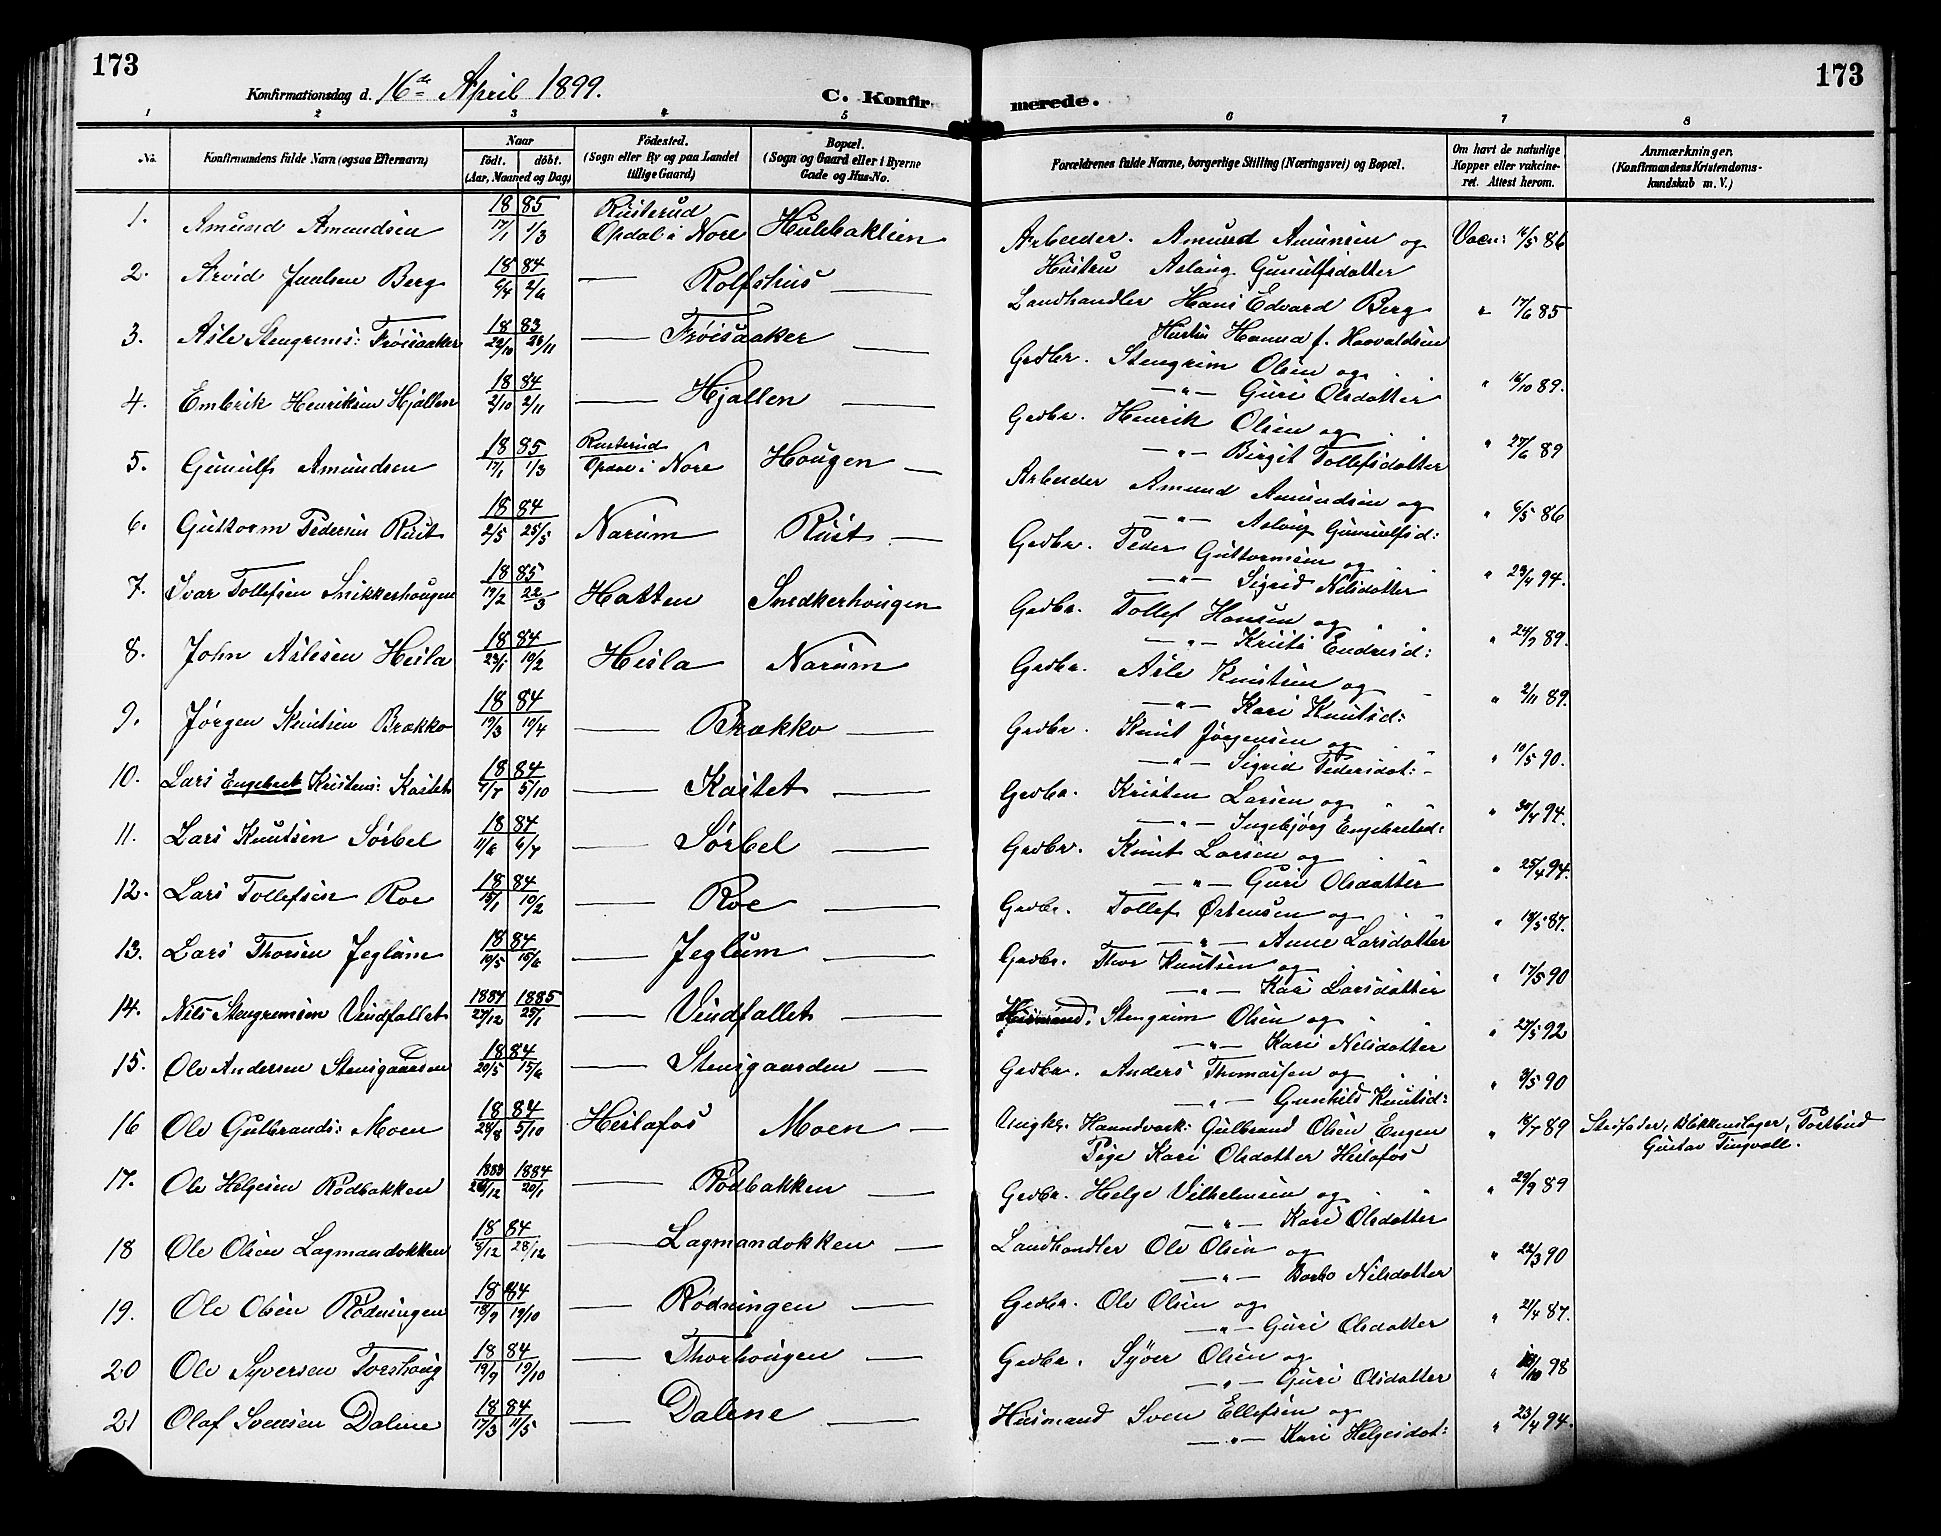 173
173
Konfirmationsdag d. 16de April 1899.
C. Konfir- merede.
1 2 3 4 5 6 7 8
No. Konfirmandens fulde Navn (ogsaa Efternavn) Naar födt. döbt. (Aar, Maaned og Dag) Födested. (Sogn eller By og paa Landet tillige Gaard) Bopæl. (Sogn og Gaard eller i Byerne Gade og Hus-No. Forældrenes fulde Navne, borgerlige Stilling (Næringsvei) og Bopæl. Om havt de naturlige Kopper eller vakcineret. Attest herom. Anmærkninger. (Konfirmandens Kristendomskundskab m. V.)
1. Amund Amundsen 1885 17/1 1/3 Rusterud Opdal i Nore Hulebaklien Arbeider. Amund Amunsen og Vacc: 16/5 86
Hustru Aslaug Gunulfsdatter
2. Arvid Juulsen Berg 1884 6/4 2/6 — Rolfshus — Landhandler Hans Edvard Berg " 17/6 85
Hustru Hanna f. Havaldsen
3. Asle Stengrims: Fröisaaker 1883 22/10 25/11 — Fröisaaker — Grdbr. Stengrim Olsen og " 16/10 89.
—"— Guri Olsdatter
4. Embrik Henriksen Hjallen 1884 2/10 2/11 — Hjallen — Grdbr. Henrik Olsen og " 27/6 89
—"— Birgit Tollefsdatter
5. Gunulf Amundsen 1885 17/1 1/3 Rusterud Opdal i Nore Hougen — Arbeider Amund Amundsen og " 6/5 86
—"— Aslaug Gunnulfsd:
6. Guttorm Pedersen Rust 1884 2/5 25/5 Narum Rust — Grdbr. Peder Guttormsen og " 23/4 94.
—"— Sigrid Nilsdatter
7. Ivar Tollefsen Snikkerhougen 1885 19/2 22/3 Hatten Snedkerhougen Grdbr. Tollef Hansen og " 24/7 89.
—"— Kristi Endresd:
8. John Aslesen Hesla 1884 23/1 10/2 Hesla Narum Grdbr. Asle Knutsen og " 2/11 89.
—"— Kari Knutsd:
9. Jørgen Knutsen Brækko 1884 19/3 19/4 — Brækko — Grdbr. Knut Jørgensen og " 10/5 90.
—"— Sigrid Pedersdat:
10. Lars Engebret Kristens: Kastet 1884 4/7 5/10 — Kastet — Grdbr. Kristen Larsen og " 30/4 94.
—"— Ingebjørg Engebretsd:
11. Lars Knutsen Sørbel 1884 11/6 6/7 — Sørbel — Grdbr. Knut Larsen og " 25/4 94.
—"— Guri Olsdatter
12. Lars Tollefsen Roe 1884 15/1 10/2 — Roe — Grdbr. Tollef Østensen og " 18/5 87.
—"— Anne Larsdatter
13. Lars Thorsen Jeglum 1884 19/5 15/6 — Jeglum — Grdbr. Thor Knutsen og " 17/5 90
—"— Kari Larsdatter
14. Nils Stengrimsen Vindfallet 1884 27/12 1885 25/1 — Vindfallet — Husmand. Stengrim Olsen og " 27/5 92
—"— Kari Nilsdatter
15. Ole Andersen Stensgaarden 1884 20/5 15/6 — Stensgaarden — Grdbr. Anders Thomassen og " 9/5 90
—"— Gunhild Knutsd:
16 Ole Gulbrands: Moen 1884 28/8 5/10 Heslafos Moen — Ungkr. Haandverk: Gulbrand Olsen Engen " 18/7 89 Stedfader, Blikkenslager, Postbud
Pige Kari Olsdatter Heslafos Gustav Tingvall.
17. Ole Helgesen Rödbakken 1883 26/12 1884 20/1 — Rödbakken — Grdbr. Helge Vilhelmsen og " 29/9 89
—"— Kari Olsdatter
18 Ole Olsen Lagmandokken 1884 8/12 28/12 — Lagmandokken — Landhandler Ole Olsen og " 22/3 90
—"— Barbo Nilsdatter
19. Ole Olsen Rödningen 1884 18/9 19/10 — Rödningen — Grdbr. Ole Olsen og " 21/4 87.
—"— Guri Olsdatter
20 Ole Syversen Torshoug 1884 19/9 19/10 — Thorhougen — Grdbr. Syver Olsen og " 98
—"— Guri Olsdatter
21 Olaf Svensen Dalene 1884 17/3 11/5 — Dalene — Husmand Sven Ellefsen og " 23/4 94.
—"— Kari Helgesdat: